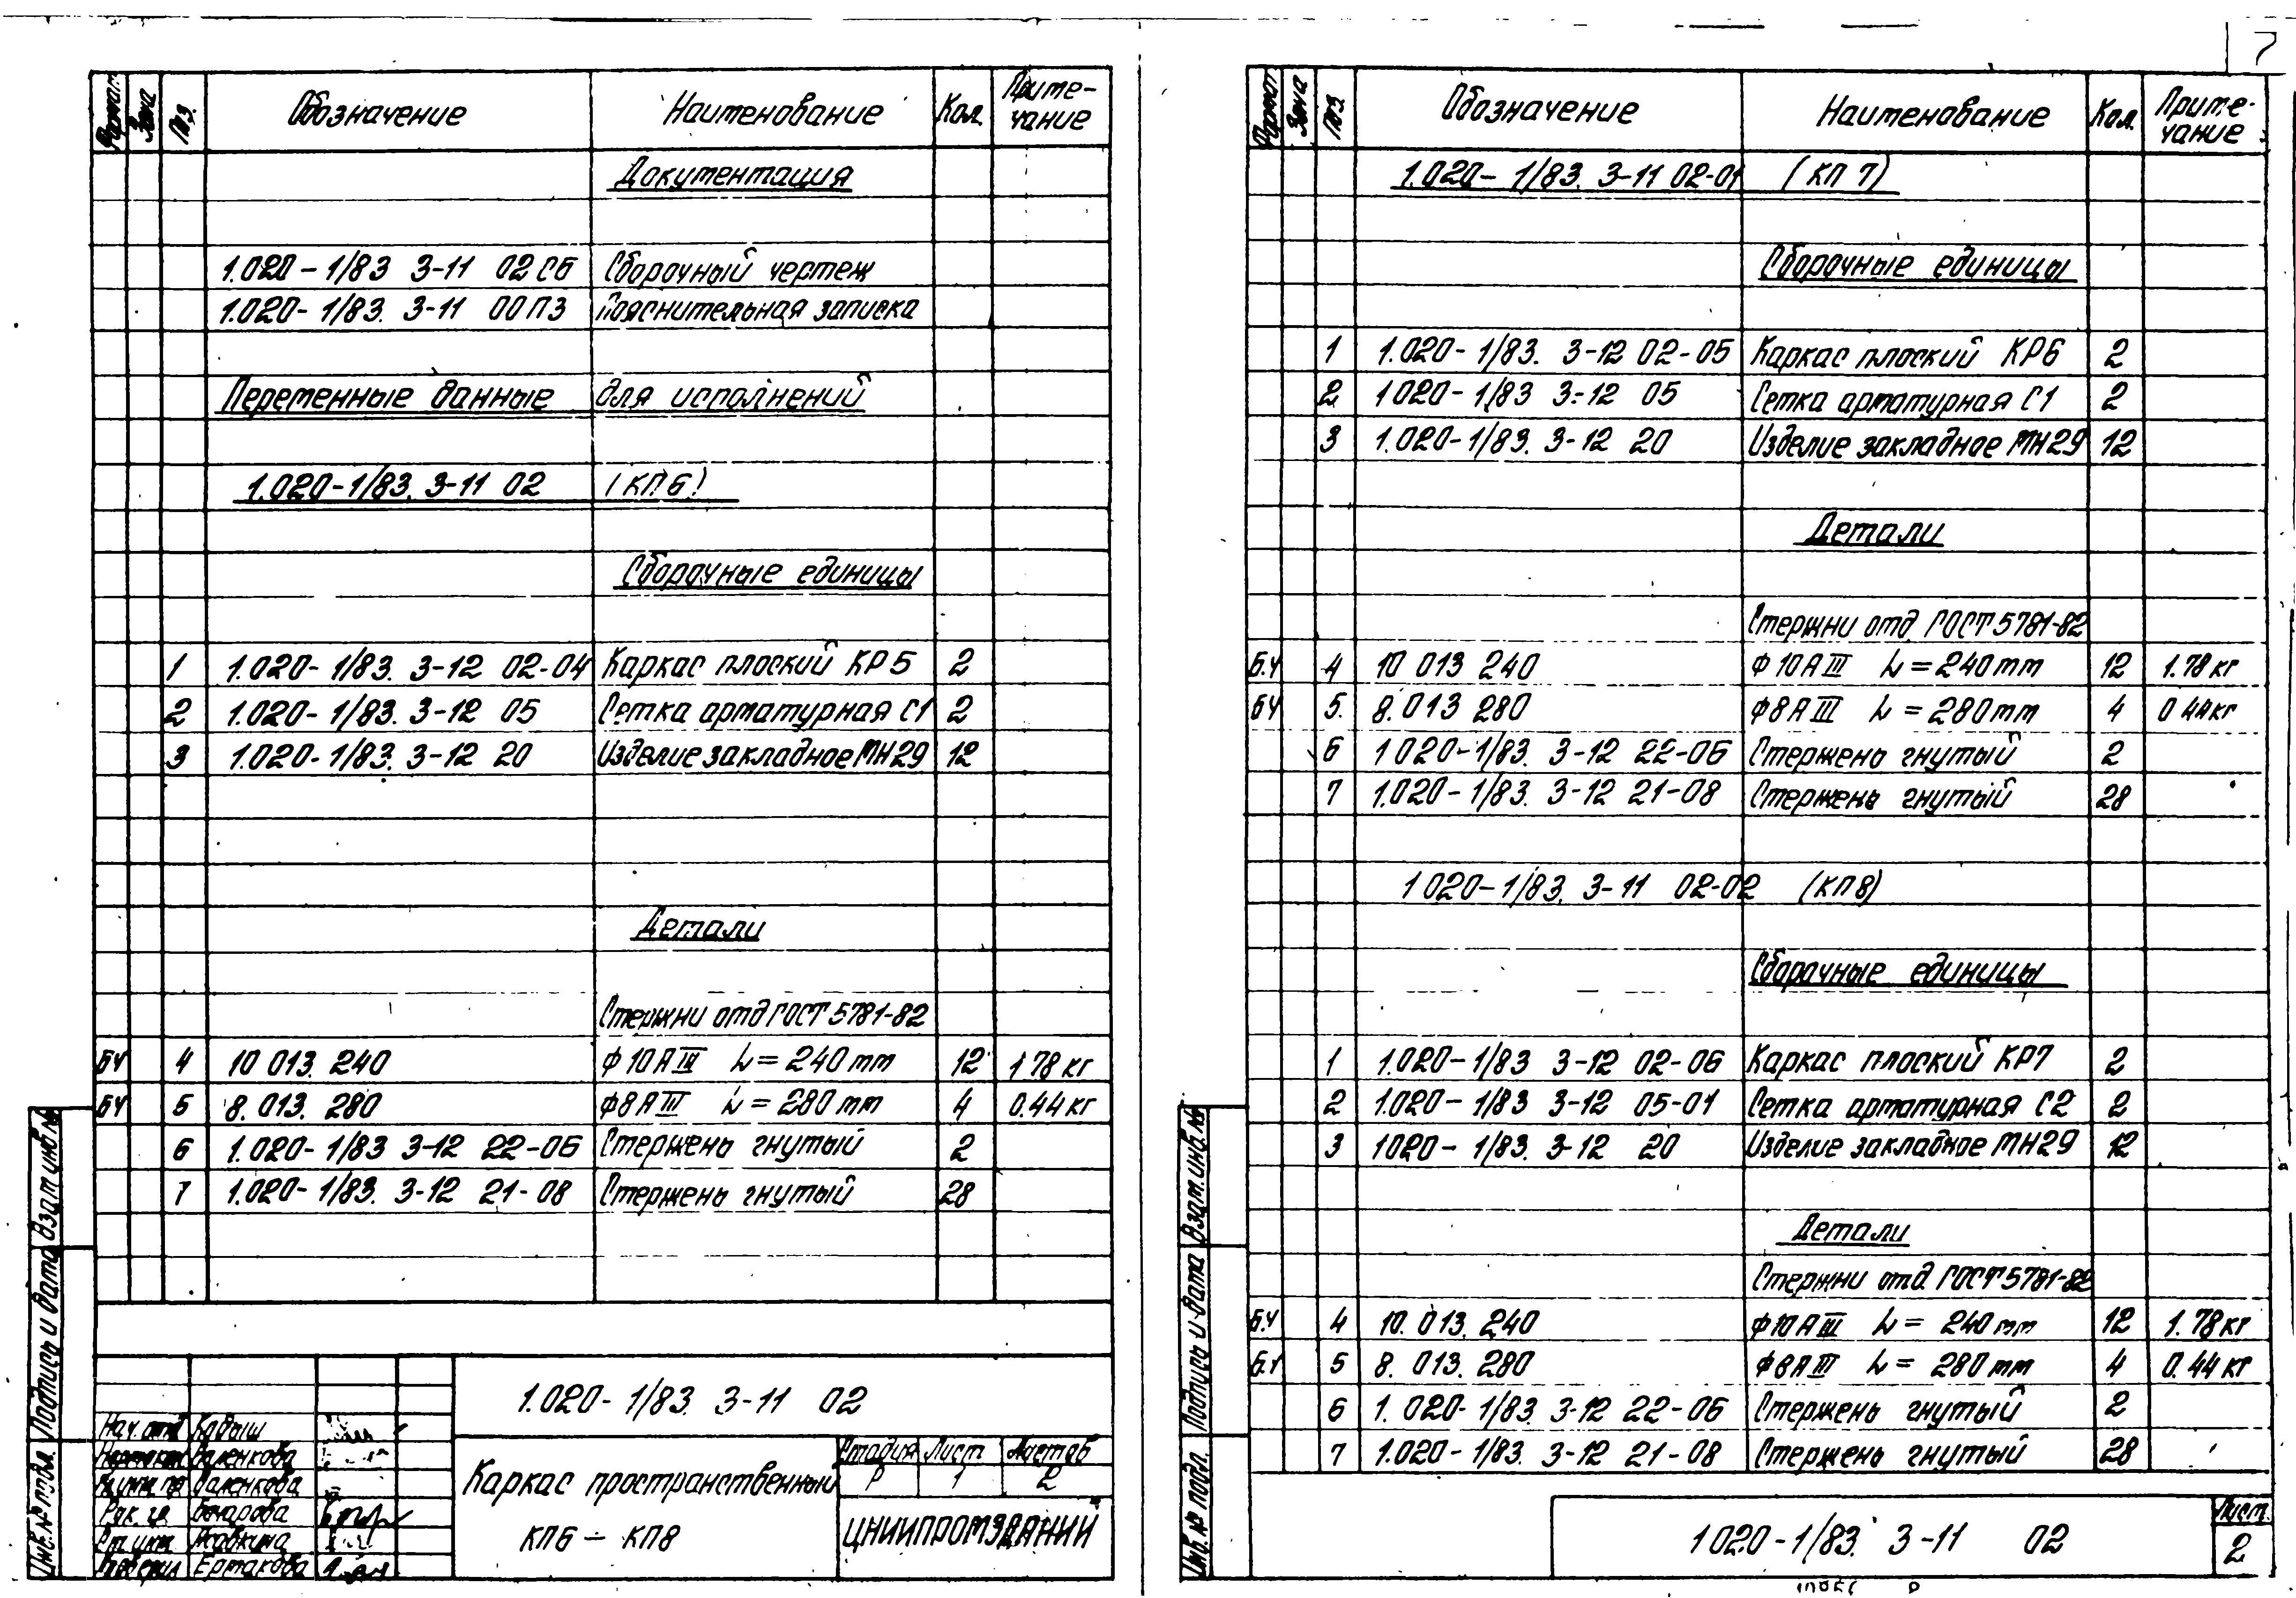 7
Формат Зона Поз. Обозначение Наименование Кол. Приме-чание
Документация
1.020-1/83 3-11 02СБ Сборочный чертеж
1.020-1/83. 3-11 00ПЗ Пояснительная записка
Переменные данные для исполнений
1.020-1/83. 3-11 02 (КП6)
Сборочные единицы
1 1.020-1/83. 3-12 02-04 Каркас плоский КР5 2
2 1.020-1/83. 3-12 05 Сетка арматурная С1 2
3 1.020-1/83. 3-12 20 Изделие закладное МН29 12
Детали
Стержни отд ГОСТ 5781-82
БЧ 4 10 013. 240 Ф10АIII L=240мм 12 1.78 кг
БЧ 5 8. 013. 280 Ф8АIII L=280мм 4 0.44 кг
6 1.020-1/83 3-12 22-06 Стержень гнутый 2
7 1.020-1/83. 3-12 21-08 Стержень гнутый 28
Взам.инв.№
Подпись и дата
Инв.№ подл.
1.020-1/83. 3-11 02
Нач.отд Кодыш
Каркас пространственный
КП6 – КП8
Стадия Лист Листов
Р 1 2
ЦНИИПРОМЗДАНИЙ
Рук. гр. Бочарова
Ермакова
Формат Зона Поз. Обозначение Наименование Кол. Приме-чание
1.020-1/83. 3-11 02-01 (КП 7)
Сборочные единицы
1 1.020-1/83. 3-12 02-05 Каркас плоский КР6 2
2 1020-1/83 3-12 05 Сетка арматурная С1 2
3 1.020-1/83. 3-12 20 Изделие закладное МН29 12
Детали
Стержни отд. ГОСТ 5781-82
Б.Ч 4 10 013 240 Ф10АIII L=240мм 12 1.78 кг
БЧ 5. 8.013 280 Ф8АIII L=280мм 4 0 44кг
6 1 020-1/83. 3-12 22-06 Стержень гнутый 2
7 1.020-1/83. 3-12 21-08 Стержень гнутый 28
1.020-1/83. 3-11 02-02 (КП8)
Сборочные единицы
1 1.020-1/83 3-12 02-06 Каркас плоский КР7 2
2 1.020-1/83 3-12 05-01 Сетка арматурная С2 2
3 1020-1/83. 3-12 20 Изделие закладное МН29 12
Детали
Стержни отд ГОСТ 5781-82
Б.Ч 4 10. 013. 240 Ф10АIII L= 240мм 12 1.78кг
Б.Ч 5 8. 013. 280 Ф8АIII L= 280мм 4 0.44 кг
6 1. 020-1/83. 3-12 22-06 Стержень гнутый 2
7 1.020-1/83. 3-12 21-08 Стержень гнутый 28
Взам.инв.№
Подпись и дата
Инв.№ подл.
1020-1/83. 3-11 02
Лист
2